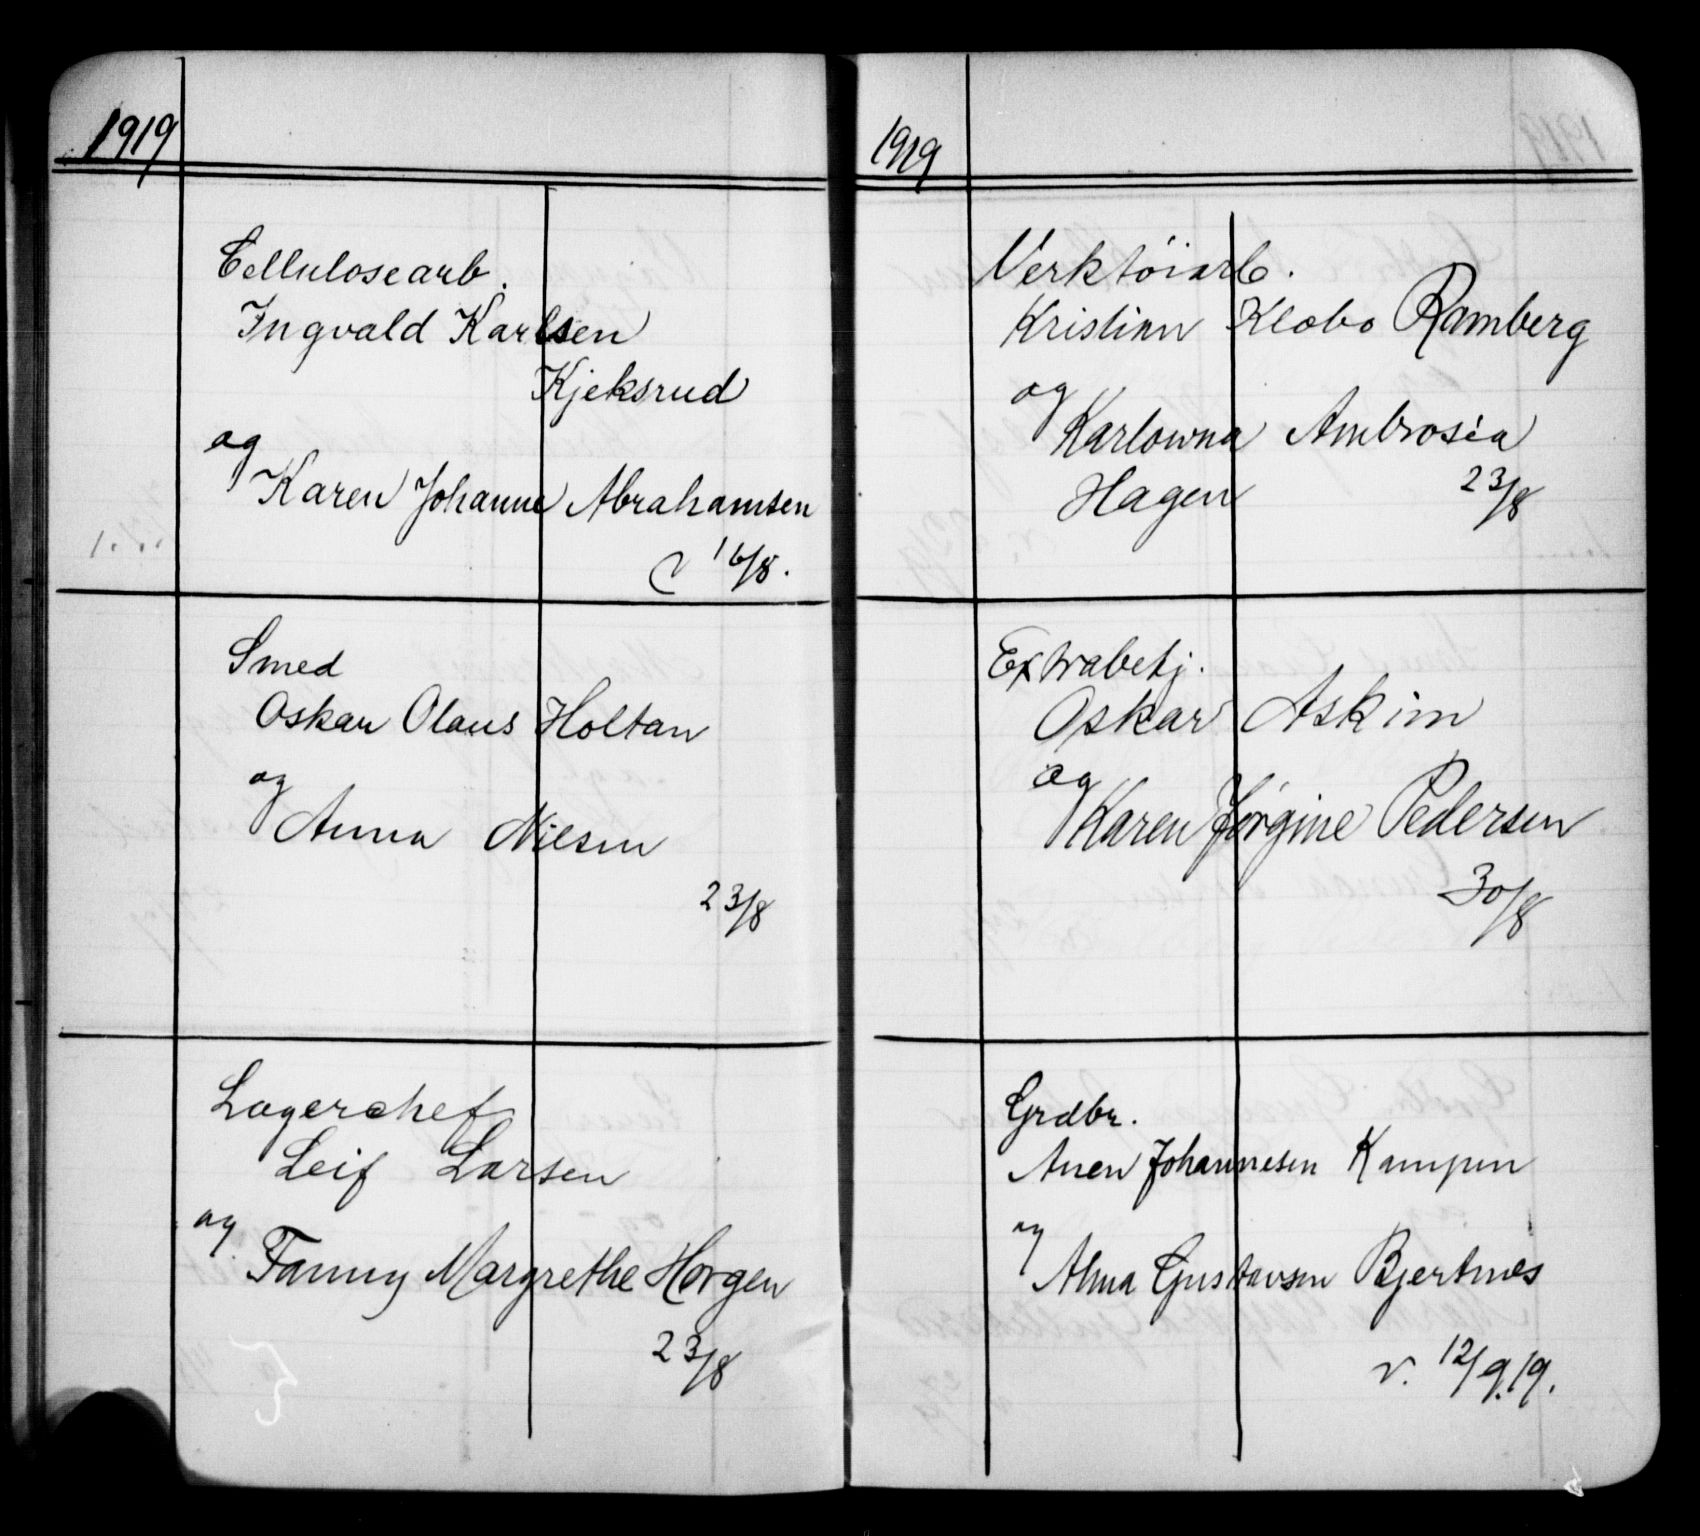 1919
Cellulosearb.
Ingvald Karlsen
Kjeksrud
og
Karen Johanne Abrahamsen
v 16/8.
Smed
Oskar Olaus Holtan
og
Anna Nilsen
23/8
Lagerchef
Leif Larsen
og
Fanny Margrethe Horgen
23/8
1919
Verktöiarb.
Kristian Klobo Ramberg
og
Karlowna Ambrosia
Hagen
23/8
Extrabetj.
Oskar Askim
og
Karen Jørgine Pedersen
30/8
Grdbr.
Johannesen Kampen
og
Alma Gustavsen Bjertnes
v. 12/9.19.